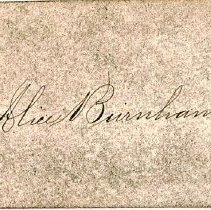 Alice Burnham